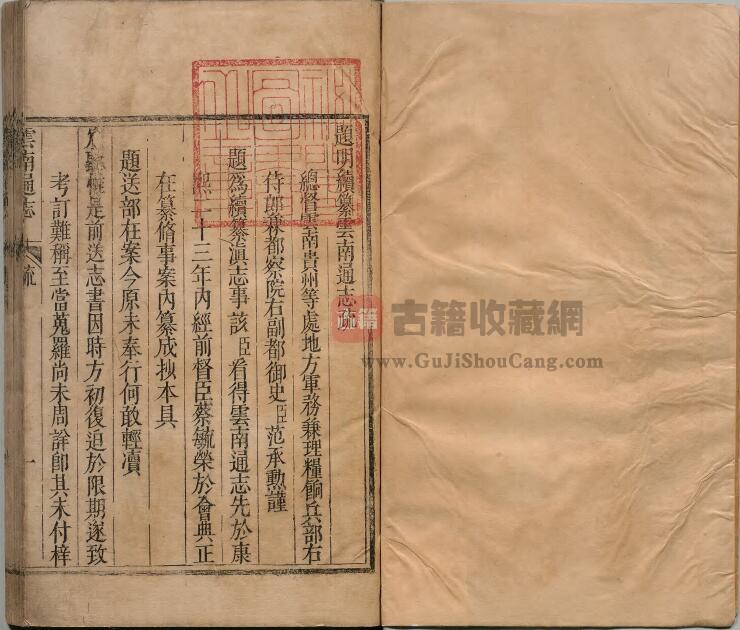 題明續纂雲南通志疏
總督雲南貴州等處地方軍務兼理糧餉兵部右
侍郎兼都察院右副都御史臣范承勲謹
題爲續纂滇志事該臣看得雲南通志先於康
熙二十三年内經前督臣蔡毓榮於會典正
在纂脩事案内纂成抄本具
題送部在案今原未奉行何敢輕瀆
是前送志書因時方初復迫於限期遂致
考訂難稱至當蒐羅尚未周詳卽其未付梓
雲南通志
疏
一
古籍收藏網
www.GuJiShouCang.com